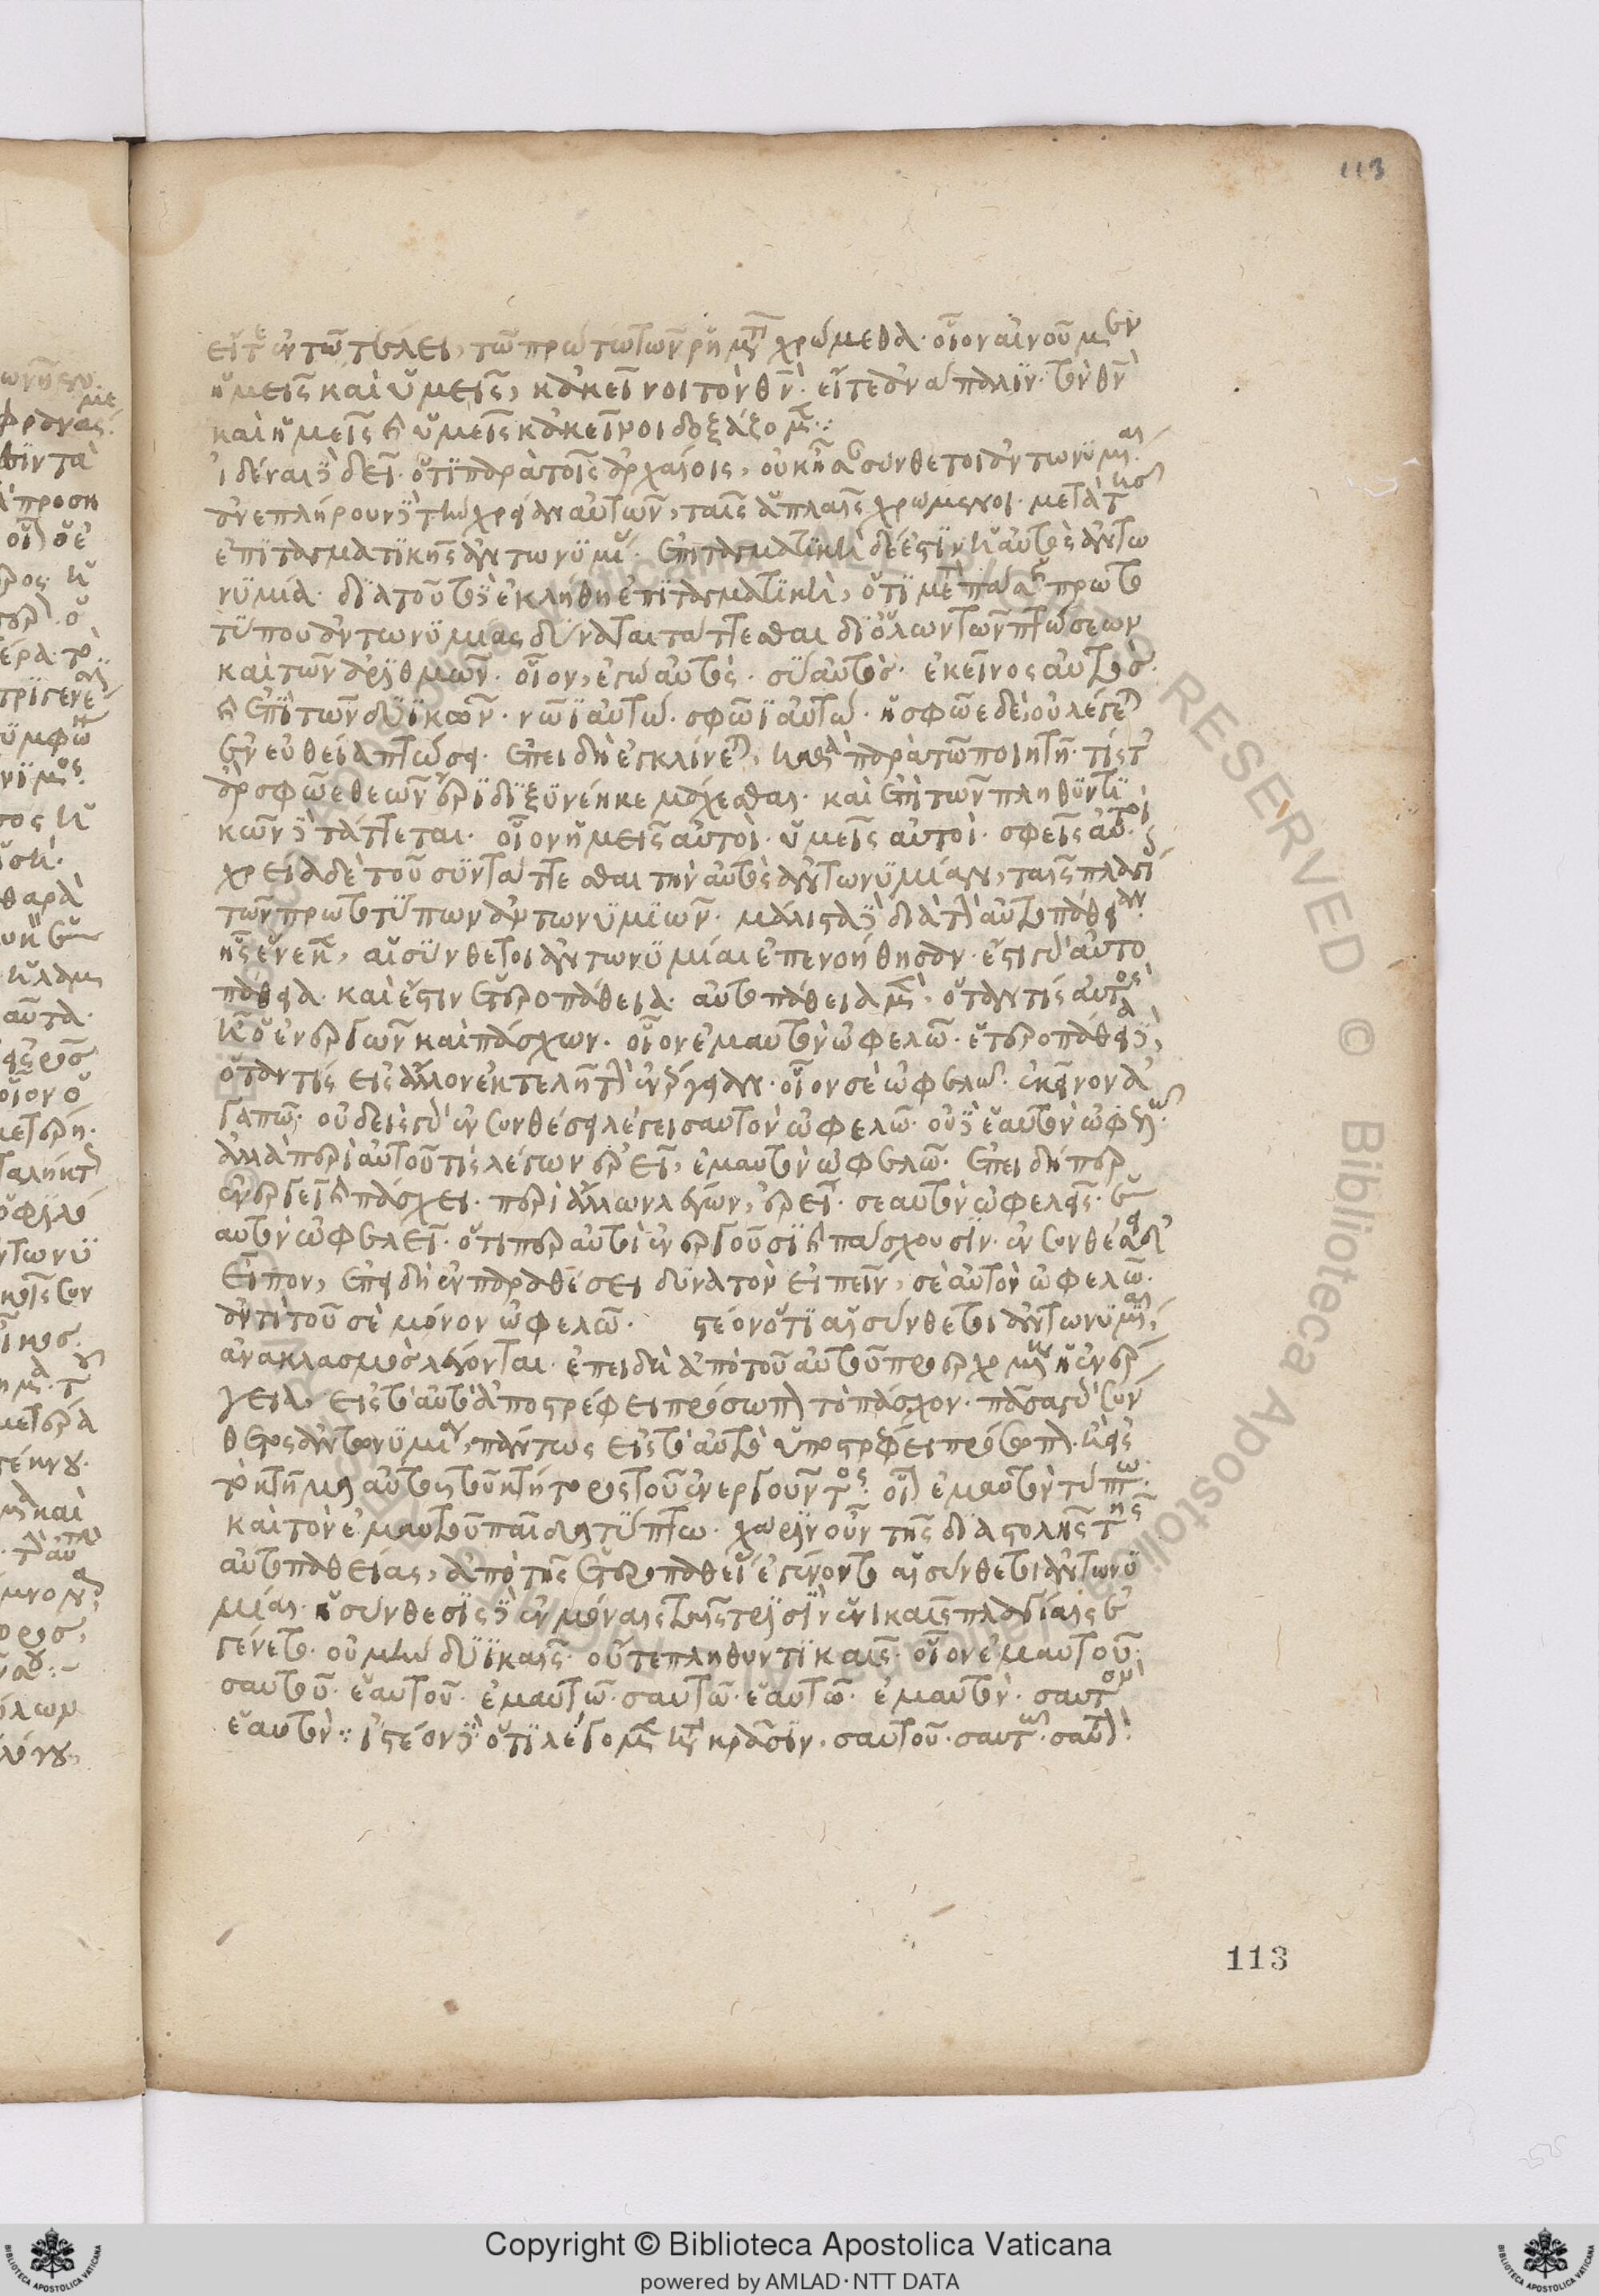 113
εἴτε ἐν τῶ τέλει, τῶ πρώτω τῶν ῥημάτων χρώμεθα· οἷον αἰνοῦμεν
ἡμεῖς καὶ ὑμεῖς, κἀκεῖνοι τὸν θν· εἴτε ἀνάπαλιν· τὸν θν
καὶ ἡμεῖς καὶ ὑμεῖς κἀκεῖνοι δοξάζομεν:
ἰδέναι δὲ δεῖ· ὅτι παρὰ τοῖς ἀρχαίοις, οὐκ ἦσαν σύνθετοι ἀντωνυμίαι·
ἀνεπλήρουν δὲ τὴν χρείαν αὐτῶν, ταῖς ἁπλαῖς χρώμενοι· μετὰ τῆς
ἐπιταγματικῆς ἀντωνυμίας· ἐπιταγματικὴ δέ ἐστιν ἡ αὐτὸς ἀντω
νυμία· διὰ τοῦτο δὲ ἐκλήθη ἐπιταγματικὴ, ὅτι μετὰ πάσης πρωτο
τύπου ἀντωνυμίας δύναται τάττεσθαι δι' ὅλων τῶν πτώσεων
καὶ τῶν ἀριθμῶν· οἷον, ἐγὼ αὐτὸς· σὺ αὐτὸς· ἐκεῖνος αὐτὸς·
καὶ ἐπὶ τῶν δυϊκῶν· νῶϊ αὐτώ· σφῶϊ αὐτώ· ἡ σφωὲ δὲ, οὐ λέγεται
ἐν εὐθεία πτώσει· ἐπειδὴ ἐγκλίνεται, παρὰ τῶ ποιητῆ· τίς τ'
ἄρ σφωε θεῶν ἔριδι ξυνέηκε μάχεσθαι· καὶ ἐπὶ τῶν πληθυντι
κῶν δὲ τάττεται· οἷον ἡμεῖς αὐτοὶ· ὑμεῖς αὐτοὶ· σφεῖς αὐτοὶ·
χρεία δὲ τοῦ συντάττεσθαι τὴν αὐτὸς ἀντωνυμίαν, ταῖς πλαγί
τῶν πρωτοτύπων ἀντωνυμιῶν· μάλιστα δὲ διὰ τὴν αὐτοπάθειαν·
ἧς ἕνεκεν, αἱ σύνθετοι ἀντωνυμίαι ἐπενοήθησαν· ἔστι γὰρ αὐτο
πάθεια· καὶ ἔστιν ἑτεροπάθεια· αὐτοπάθεια μὲν, ὅταν τίς αὐτὸς
ὁ ἐνεργῶν καὶ πάσχων· οἷον ἐμαυτὸν ὠφελῶ· ἑτεροπάθεια δὲ,
ὅταν τίς εἰς ἄλλον ἐκτελῆ τὴν ἐνέργειαν· οἷον σὲ ὠφελῶ· ἐκεῖνον ἀ
γαπῶ· οὐδεὶς γὰρ ἐν συνθέσει λέγει σαυτὸν ὠφελῶ· οὐδὲ ἑαυτὸν ὠφελῶ·
ἀλλὰ περὶ αὐτοῦ τίς λέγων ἐρεῖ, ἐμαυτὸν ὠφελῶ· ἐπειδήπερ
ἐνεργεῖ καὶ πάσχει· περὶ ἄλλων λέγων, ἐρεῖ· σεαυτὸν ὠφελεῖς· ἑ
αυτὸν ὠφελεῖ· ὅτιπερ αὐτοὶ ἐνεργοῦσι καὶ πάσχουσιν· ἐν συνθέσει δ'
εἶπον, ἐπειδὴ ἐν παραθέσει δυνατὸν εἰπεῖν, σὲ αὐτὸν ὠφελῶ·
ἀντὶ τοῦ σὲ μόνον ὠφελῶ· στέον ὅτι αἱ σύνθετοι ἀντωνυμίαι,
ἀνακλασμὸς λέγονται· ἐπειδὴ ἀπὸ τοῦ αὐτοῦ προερχομένη ἡ ἐνέρ
γεια, εἰς τὸ αὐτὸ ἀποστρέφει πρόσωπον τὸ πάσχον· πᾶσα γὰρ σύν
θετος ἀντωνυμία, πάντως εἰς τὸ αὐτὸ ὑποστρέφει πρόσωπον·
τὸ κτῆμα αὐτὸ τοῦ κτήτορος τοῦ ἐνεργοῦντος· οἷον ἐμαυτὸν τύπτω·
καὶ τὸν ἐμαυτοῦ παῖδα τύπτω· χάριν οὖν τῆς διαστολῆς τῆς
αὐτοπαθείας, ἀπὸ τῆς ἑτεροπαθείας ἐγένοντο αἱ σύνθετοι ἀντωνυ
μίαι· ἡ σύνθεσις δὲ ἐν μόναις ταῖς τρισὶν ἑνικαῖς πλαγίαις ἐ
γένετο· οὐ μὴν δυϊκαῖς· οὔτε πληθυντικαῖς· οἷον ἐμαυτοῦ·
σαυτοῦ· ἑαυτοῦ· ἐμαυτῶ· σαυτῶ· ἑαυτῶ· ἐμαυτὸν· σαυτὸν
ἑαυτὸν: ἰστέον δὲ ὅτι λέγομεν κατὰ κρᾶσιν· σαυτοῦ· σαυτῶ· σαυτὸν·
113
Copyright © Biblioteca Apostolica Vaticana
powered by AMLAD·NTT DATA